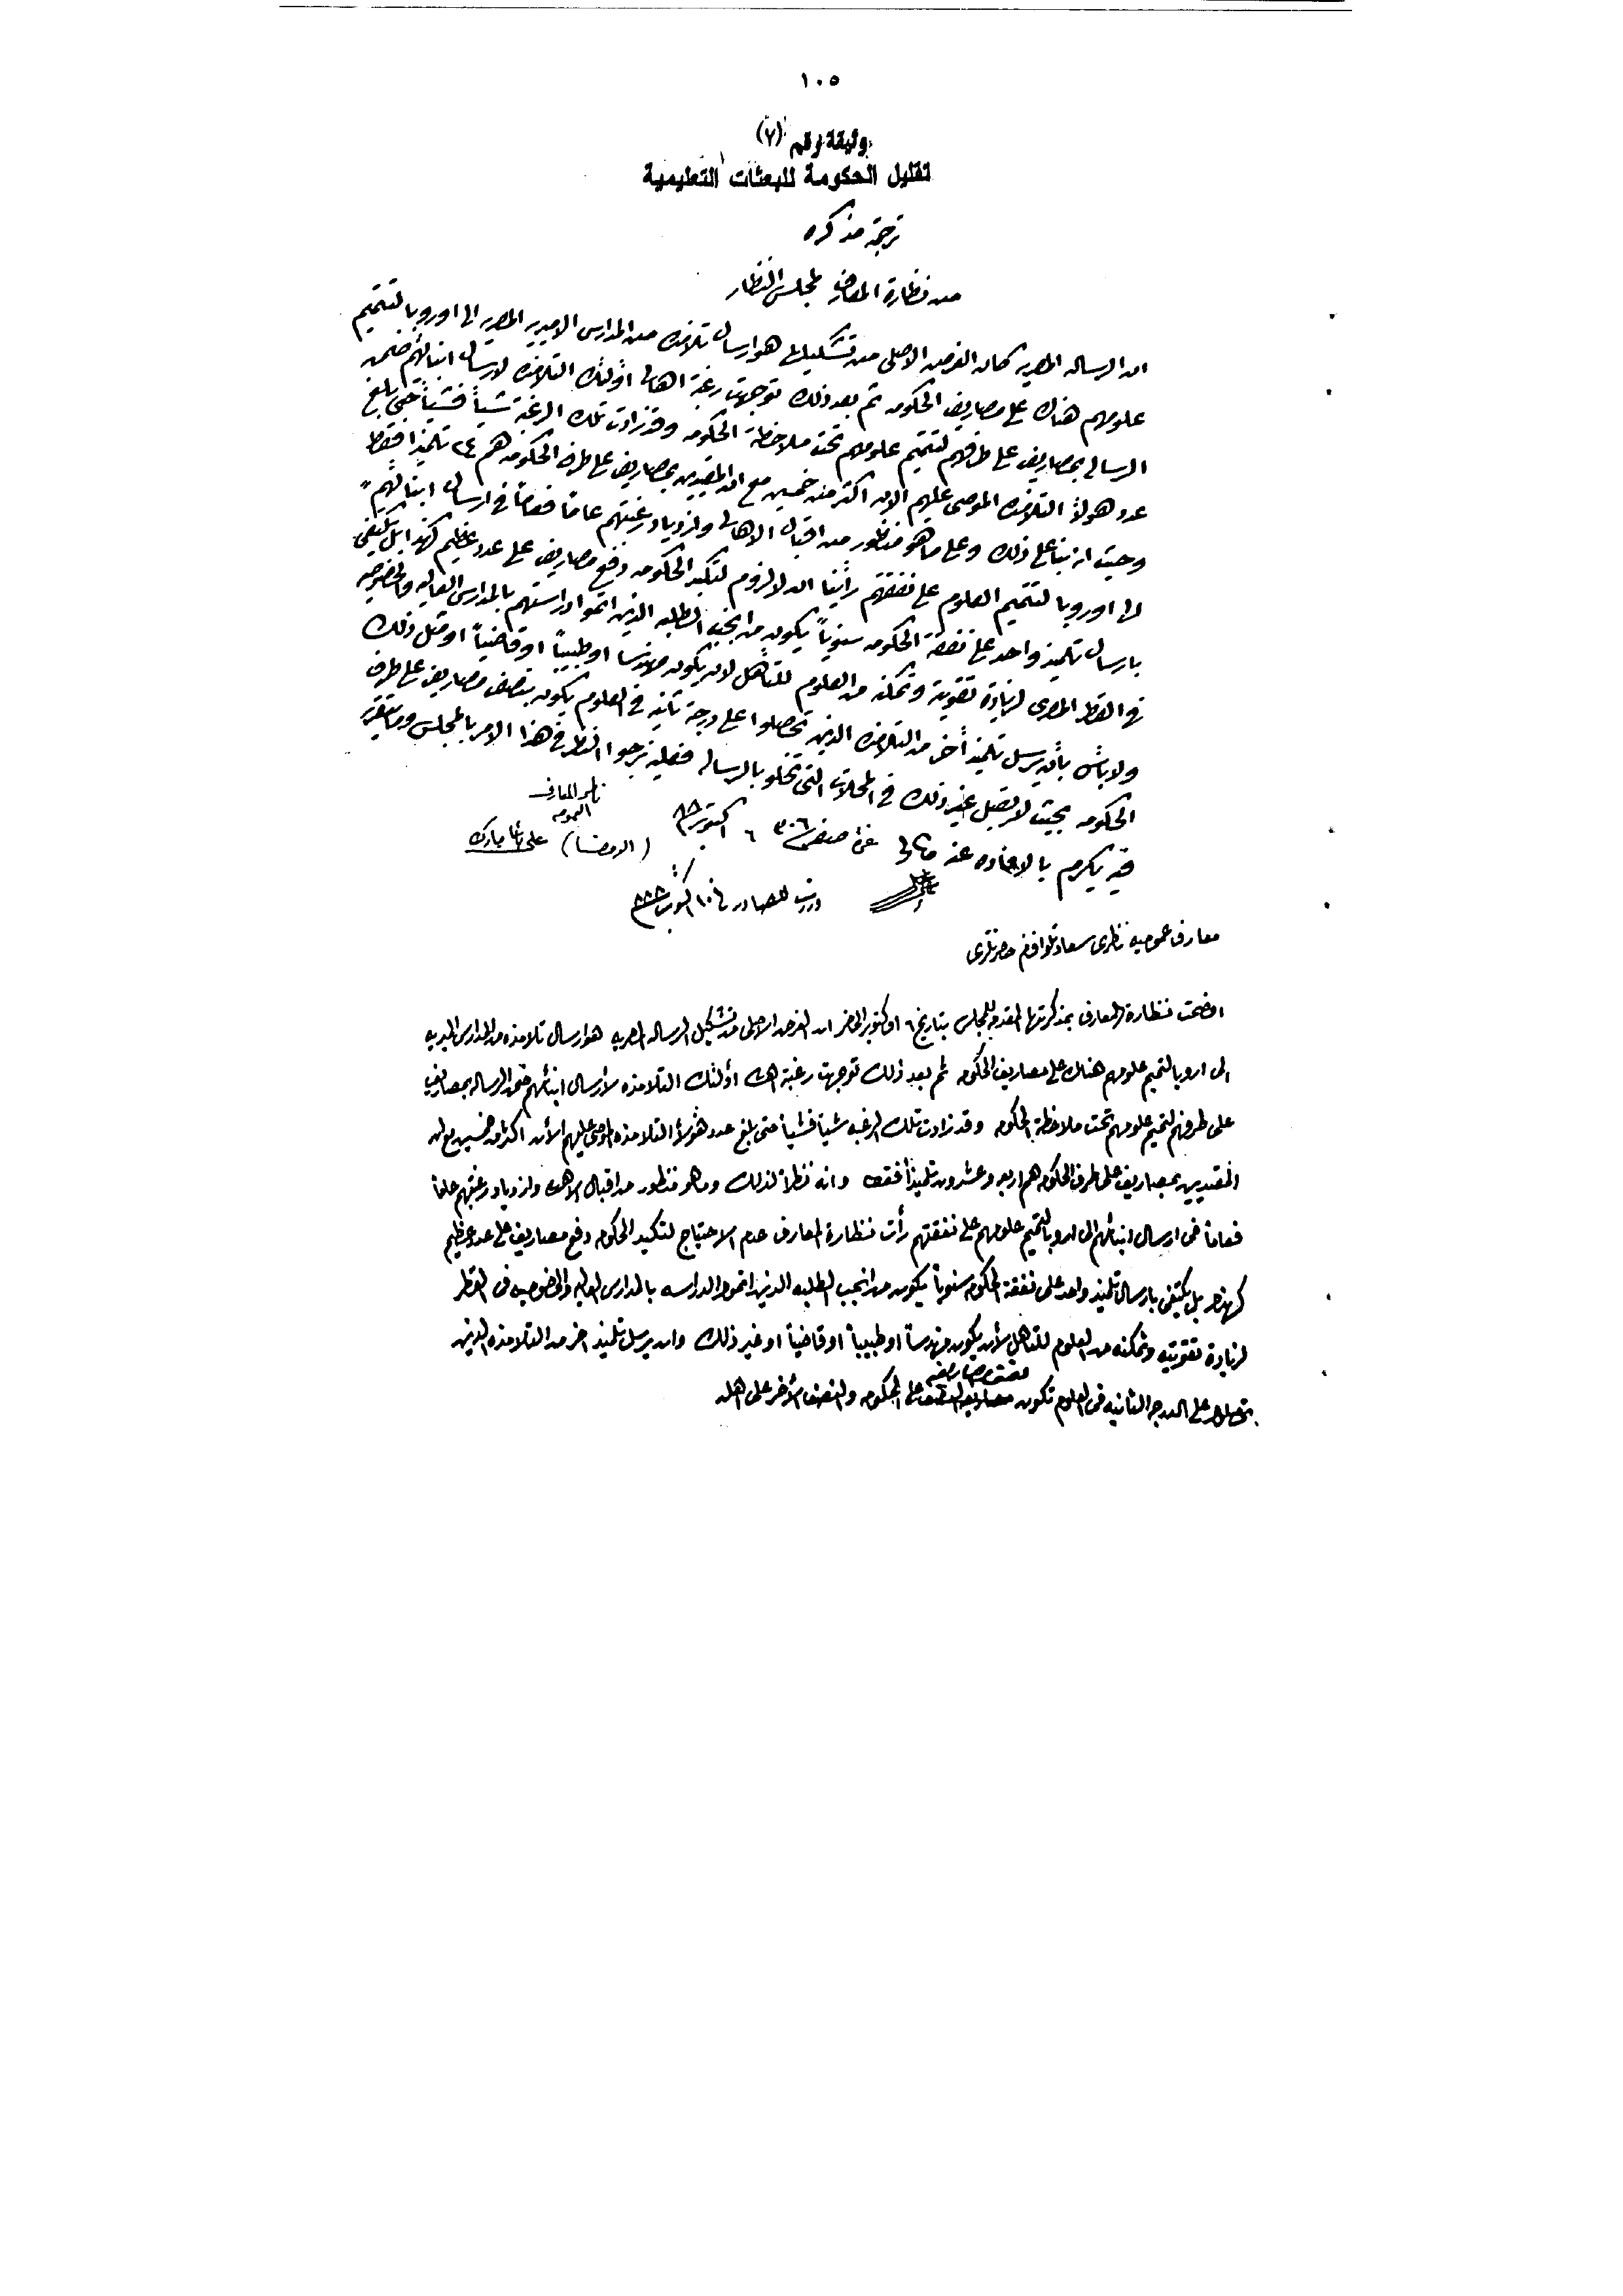 ١٠٥
وثيقة رقم (٧)
تقليل الحكومة للبعثات التعليمية
ترجمة مذكره
من نظارة المعارف لمجلس النظار
ان الرساله المصريه كان الغرض الاصلى من تشكيلها هو ارسال تلامذه من المدارس الاميريه المصريه الى اوروبا لتتميم
علومهم هناك على مصاريف الحكومه ثم بعد ذلك توجهت رغبة اهالى اؤلئك التلامذه لارسال ابنائهم ضمن
الرساله بمصاريف على طرفهم لتتميم علومهم تحت ملاحظة الحكومه وقد زادت تلك الرغبة شيأً فشيأً حتى بلغ
عدد هولاء التلامذه الموصى عليهم الان اكثر من خمسين مع ان المقيدين بمصاريف على طرف الحكومه هم ٢٤ تلميذا فقط
وحيث انه بناء على ذلك وعلى ما هو منظور من اقبال الاهالى وازدياد رغبتهم عاماً فعاماً فى ارسال ابنائهم
الى اوروبا لتتميم العلوم على نفقتهم رأينا ان لا لزوم لتكبد الحكومه دفع مصاريف على عدد عظيم كهذا بل يكتفى
بارسال تلميذ واحد على نفقة الحكومه سنوياً يكون من انجب الطلبه الذين اتموا دراستهم بالمدارس العاليه والخصوصيه
فى القطر المصرى لزيادة تقويته وتمكنه من العلوم للتأهل لان يكون مهندسا او طبيباً او قاضياً او مثل ذلك
ولا بأس بأن يرسل تلميذ أخر من التلامذه الذين تحصلوا على درجة ثانيه فى العلوم يكون بنصف مصاريف على طرف
الحكومه بحيث لا يقبل غير ذلك فى المحلات التى تخلو بالرساله فعليه نرجوا النظر فى هذا الامر بالمجلس وما يتقرر
فيه يكرم بالافاده عنه غرة صفر سنة ٣٠٦ ٦ اكتوبر سنة ٨٨
ناظر المعارف
العموميه
(الامضا) على باشا مبارك
للصادر فى ١٠ اكتوبر سنة ٨٨٨
معارف عموميه ناظرى سعادتلو افندم حضرتلرى
اوضحت نظارة المعارف بمذكرتها المقدمه للمجلس بتاريخ ٦ اوكتوبر الحاضر ان الغرض الاصلى من تشكيل الرساله المصريه هو ارسال تلامذه من المدارس الميريه
الى اروبا لتتميم علومهم هناك على مصاريف الحكومه ثم بعد ذلك توجهت رغبة اهالى اؤلئك التلامذه لأرسال ابنائهم ضمن الرساله بمصاريف
على طرفهم لتتميم علومهم تحت ملاحظة الحكومه وقد زادت تلك الرغبه شيأ فشيأ حتى بلغ عدد هؤلاء التلامذه الموصى عليهم الأن اكثر من خمسين مع ان
المقيدين بمصاريف على طرف الحكومه هم اربعه وعشرون تلميذاً فقط وانه نظراً لذلك وما هو منظور من اقبال الاهالى وازدياد رغبتهم عاماً
فعاماً فى ارسال ابنائهم الى اروبا لتتميم علومهم على نفقتهم رأت نظارة المعارف عدم الاحتياج لتكبد الحكومه دفع مصاريف على عدد عظيم
كهذا بل يكتفى بارسال تلميذ واحد على نفقة الحكومه سنوياً يكون من انجب الطلبه الذين اتموا الدراسه بالمدارس العاليه والخصوصيه فى القطر
لزيادة تقويته وتمكنه من العلوم للتأهل لأن يكون مهندساً او طبيباً او قاضياً او غير ذلك وان يرسل تلميذ اخر من التلامذه الذين
نصف مصاريفه
تحصلوا على الدرجه الثانيه فى العلوم تكون على الحكومه والنصف الأخر على اهله